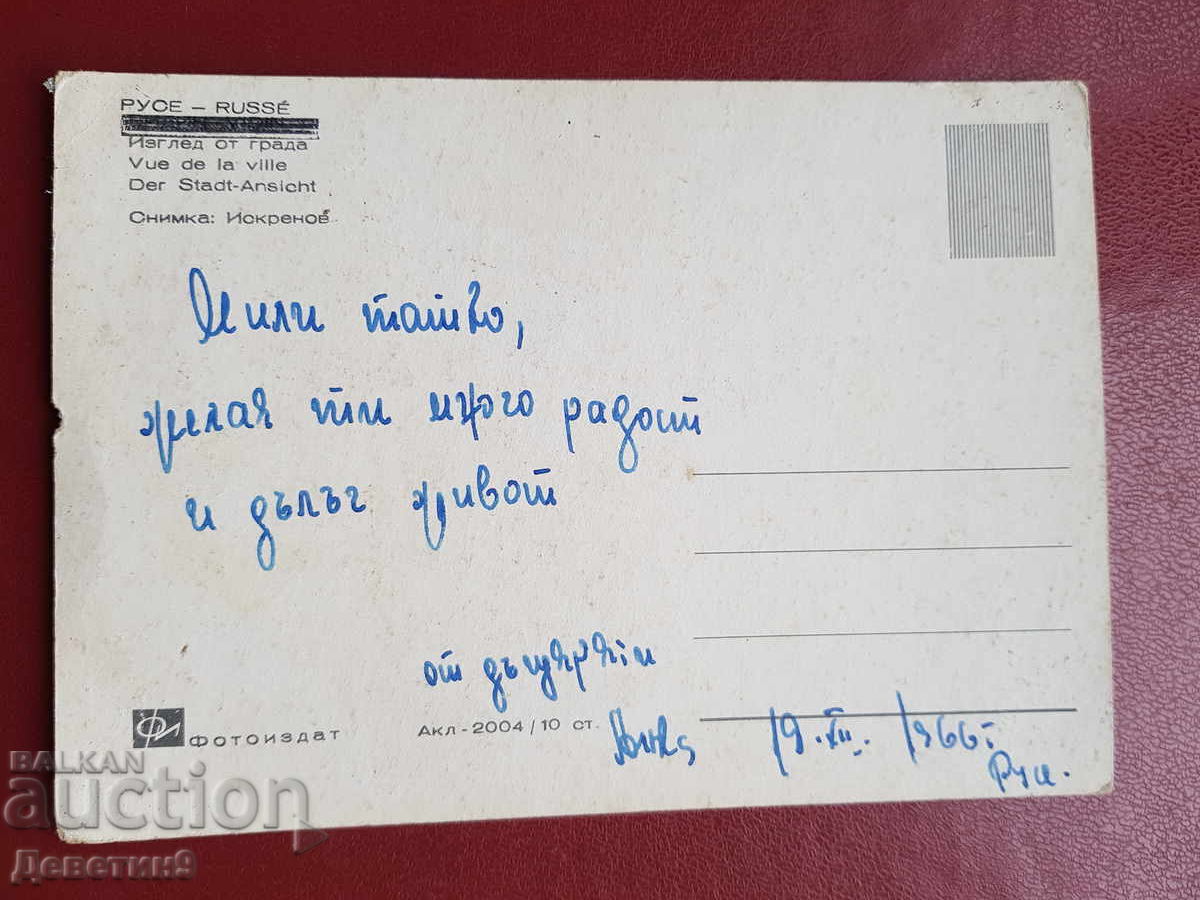 РУСЕ – RUSSÉ
Изглед от града
Vue de la ville
Der Stadt-Ansicht
Снимка: Искренов
Мили татко,
желая ти много радост
и дълъг живот
от дъщеря ти
19.XII.1966г.
Русе.
ФОТОИЗДАТ
Акл-2004/10 ст.
BALKAN
auction
Деветин9